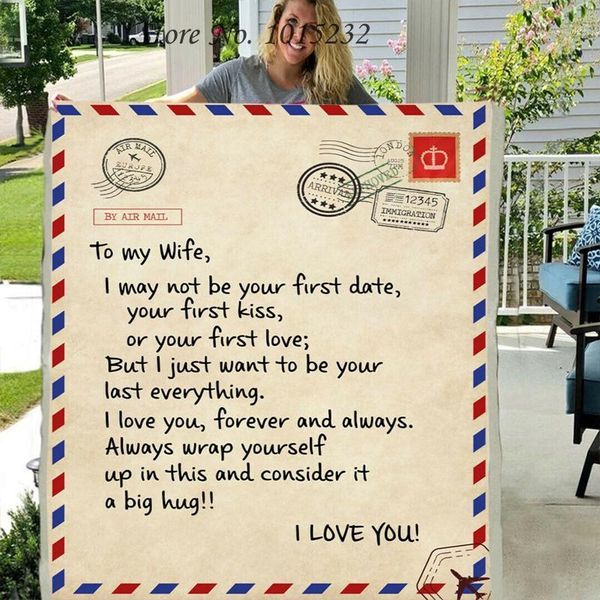 Store No. 1015232
AIR MAIL
EUROPE
LONDON
ARRIVAL
12345
IMMIGRATION
BY AIR MAIL
To my Wife,
I may not be your first date,
your first kiss,
or your first love;
But I just want to be your
last everything.
I love you, forever and always.
Always wrap yourself
up in this and consider it
a big hug!!
I LOVE YOU!